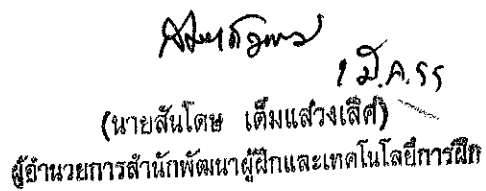 ๑ มี.ค. ๕๕
(นายสันโดษ เต็มแสวงเลิศ)
ผู้อำนวยการสำนักพัฒนาผู้ฝึกและเทคโนโลยีการฝึก